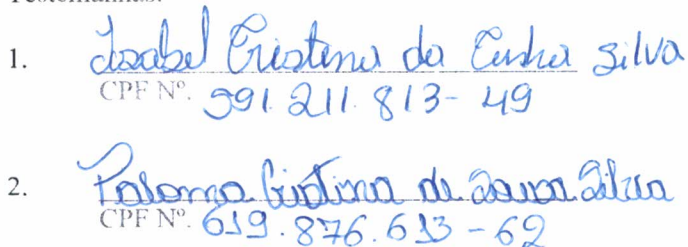 Testemunhas:
1. Isabel Cristina da Cunha Silva
CPF Nº. 591.211.813-49
2. Paloma Cristina de Sousa Silva
CPF Nº. 619.876.613-62